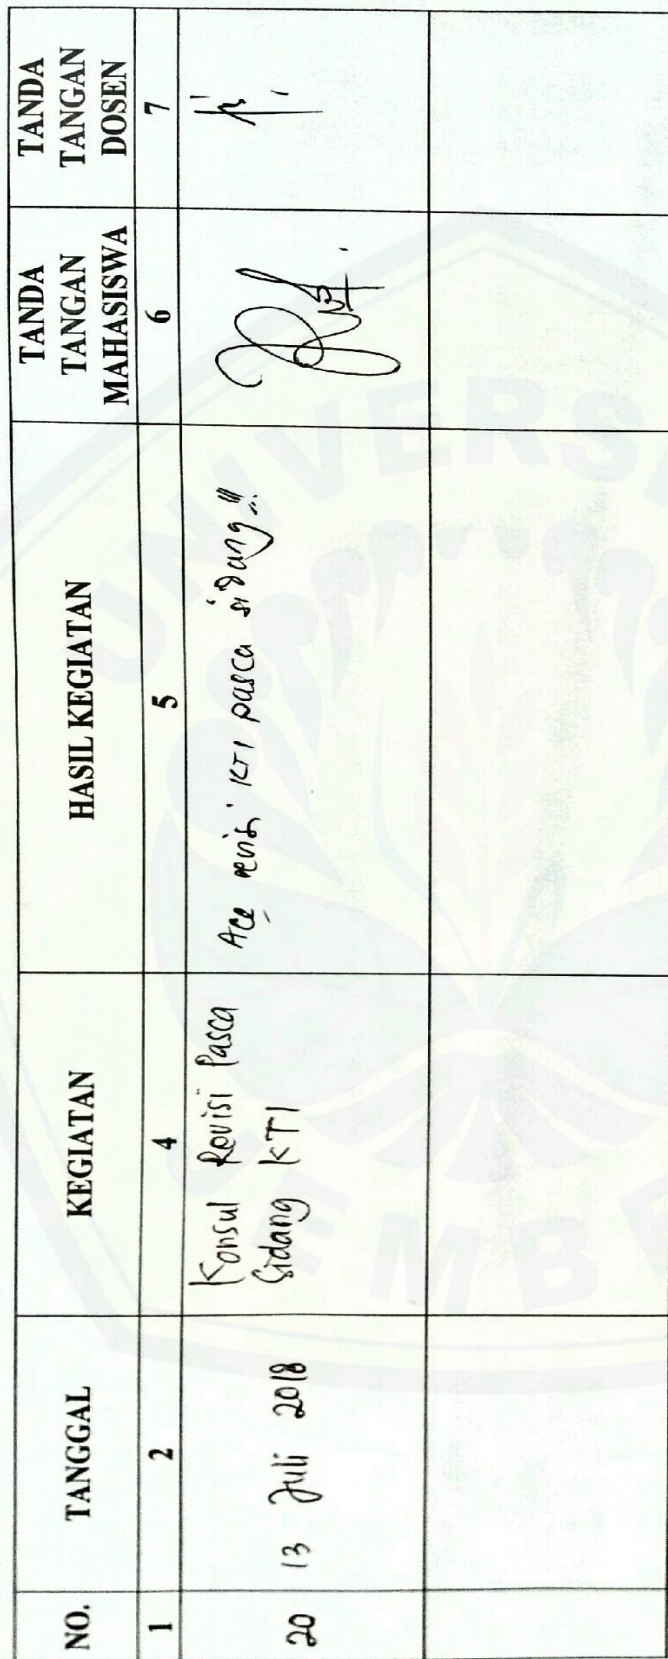 NO. TANGGAL KEGIATAN HASIL KEGIATAN TANDA TANGAN MAHASISWA TANDA TANGAN DOSEN
1 2 4 5 6 7
20 13 Juli 2018 Konsul Revisi Pasca Acc revisi KTI pasca sidang!!!
Sidang KTI